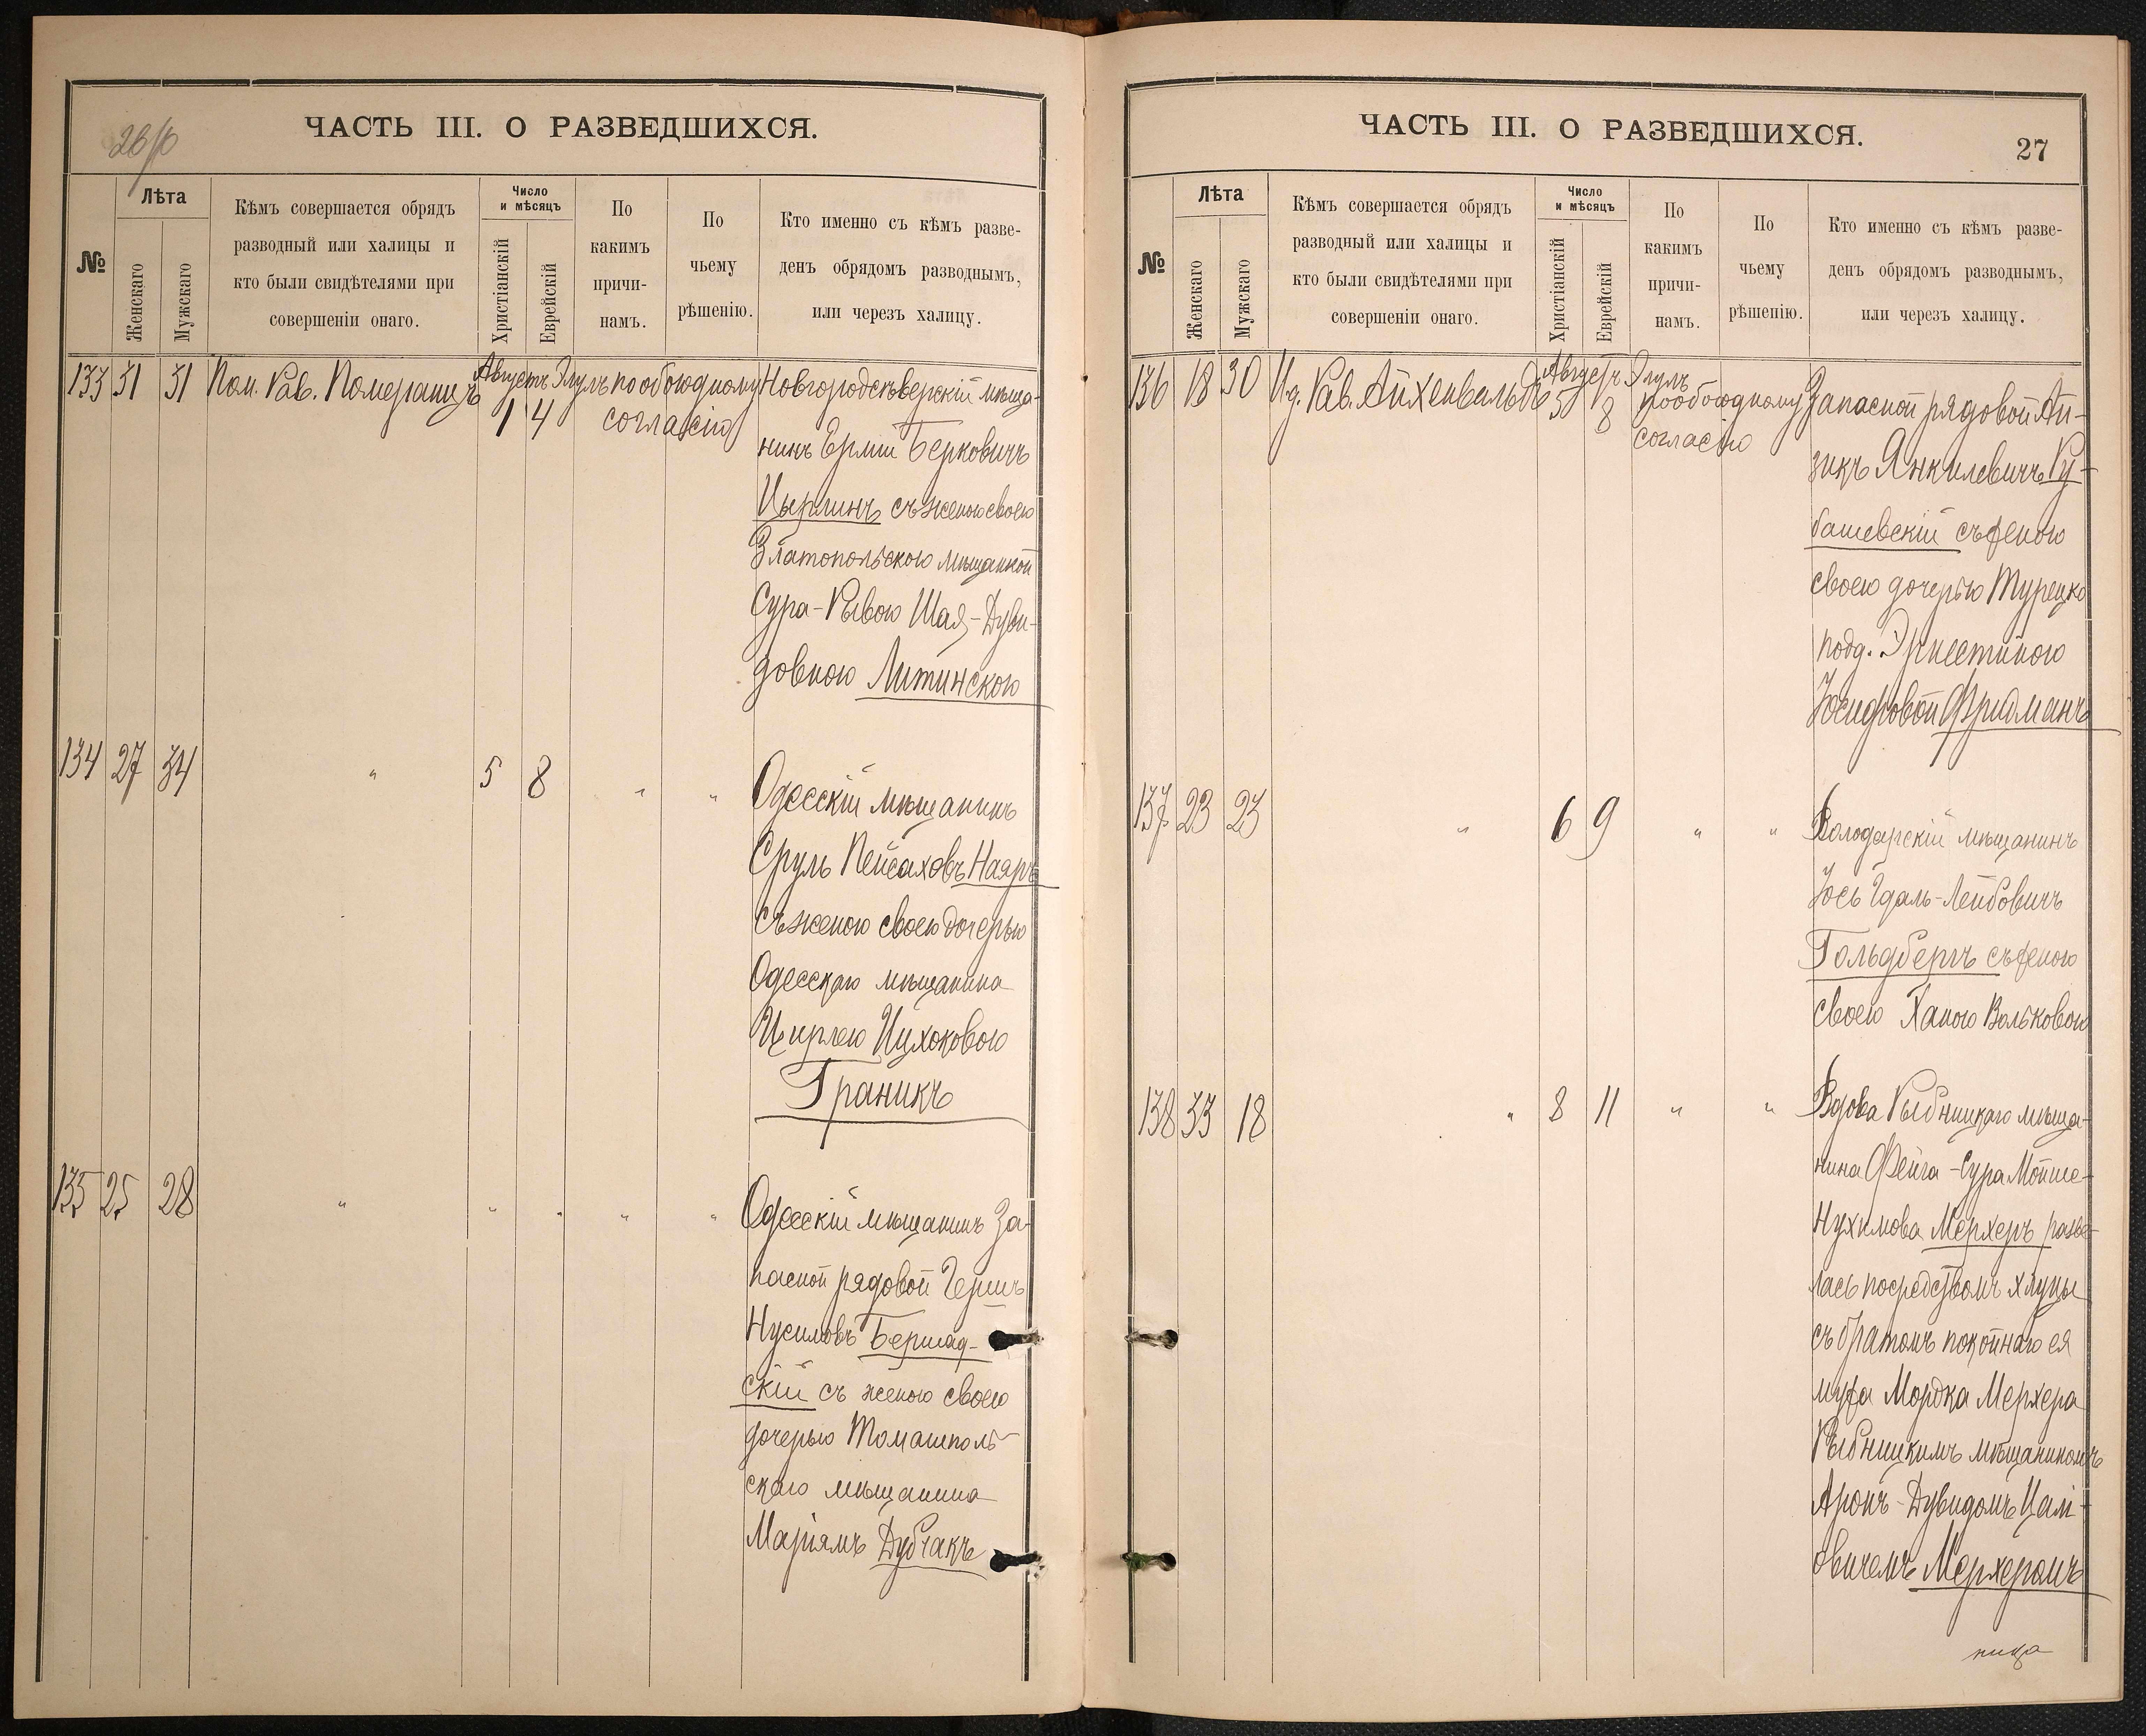 ЧАСТЬ III. О РАЗВЕДШИХСЯ.
№
Лѣта
Женскаго
Мужскаго
Кѣмъ совершается обрядъ
разводный или халицы и
кто были свидѣтелями при
совершеніи онаго.
Число
и мѣсяцъ
Христіанскій
Еврейскій
По
какимъ
причи-
намъ.
По
чьему
рѣшенію.
Кто именно съ кѣмъ разве-
денъ обрядомъ разводнымъ,
или черезъ халицу.
133 31 31 Пом. Рав. Померанцъ Августъ Элулъ по обоюдному Новгородсѣверскій мѣща-
1 4 согласію
нинъ Ерлій Берковичъ
Цырлинъ съ женою своею
Златопольскою мѣщанкой
Сура-Рывою Шая-Дуви-
довною Литинскою
134 27 34 " 5 8 " " Одесскій мѣщанинъ
Сруль Пейсаховъ Наяръ
съ женою своею дочерью
Одесскаго мѣщанина
Цирлею Ицхоковою
Граникъ
135 25 28 " " " " " Одесскій мѣщанинъ За-
пасной рядовой Гершъ
Нусимовъ Бершад-
скій съ женою своею
дочерью Томашполь-
скаго мѣщанина
Маріямъ Дубчакъ
ЧАСТЬ III. О РАЗВЕДШИХСЯ.
27
№
Лѣта
Женскаго
Мужскаго
Кѣмъ совершается обрядъ
разводный или халицы и
кто были свидѣтелями при
совершеніи онаго.
Число
и мѣсяцъ
Христіанскій
Еврейскій
По
какимъ
причи-
намъ.
По
чьему
рѣшенію.
Кто именно съ кѣмъ разве-
денъ обрядомъ разводнымъ,
или черезъ халицу.
136 18 30 И.д. Рав. Айхенвальдъ Августъ Элулъ по обоюдному Запасной рядовой Ай-
5 8 согласію
зикъ Янкилевичъ Ру-
башевскій съ женою
своею дочерью Турецко
подд. Эрнестиною
Юсифовой Фридманъ
137 23 23 " 6 9 " " Володарскій мѣщанинъ
Юсь Гдаль-Лейбовичъ
Гольдбергъ съ женою
своею Ханою Вольковою
138 33 18 " 8 11 " " Вдова Рыбницкаго мѣща-
нина Фейга-Сура Мойше-
Нухимова Мерхеръ разве-
лась посредствомъ хлицы
съ братомъ покойнаго ея
мужа Мордка Мерхера
Рыбницкимъ мѣщаниномъ
Аронъ-Дувидомъ Цалі-
овичемъ Мерхеромъ